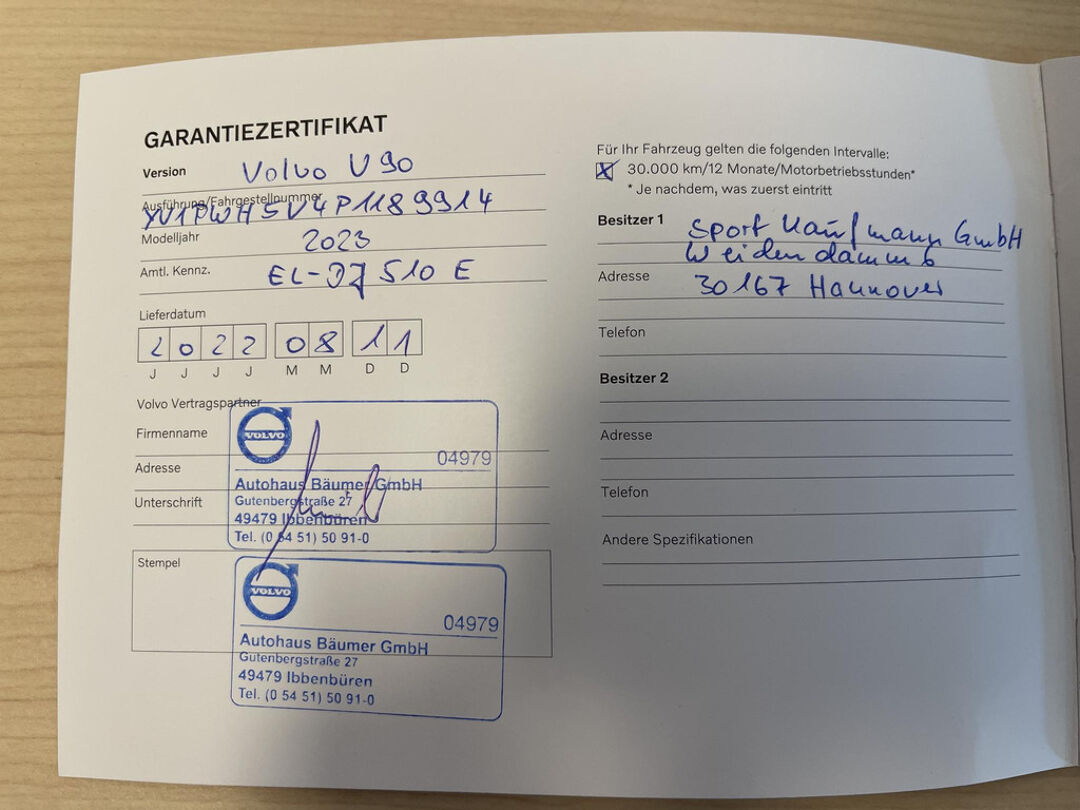 GARANTIEZERTIFIKAT
Version Volvo V90
Ausführung/Fahrgestellnummer
YV1PWH5V4P1189914
Modelljahr 2023
Amtl. Kennz. EL-DJ 510 E
Lieferdatum
2 0 2 2 0 8 1 1
J J J J M M D D
Volvo Vertragspartner
Firmenname
Adresse
Unterschrift
VOLVO
04979
Autohaus Bäumer GmbH
Gutenbergstraße 27
49479 Ibbenbüren
Tel. (0 54 51) 50 91-0
Stempel
VOLVO
04979
Autohaus Bäumer GmbH
Gutenbergstraße 27
49479 Ibbenbüren
Tel. (0 54 51) 50 91-0
Für Ihr Fahrzeug gelten die folgenden Intervalle:
X 30.000 km/12 Monate/Motorbetriebsstunden*
* Je nachdem, was zuerst eintritt
Besitzer 1 Sport Kaufmann GmbH
Weidendamm 6
Adresse 30167 Hannover
Telefon
Besitzer 2
Adresse
Telefon
Andere Spezifikationen